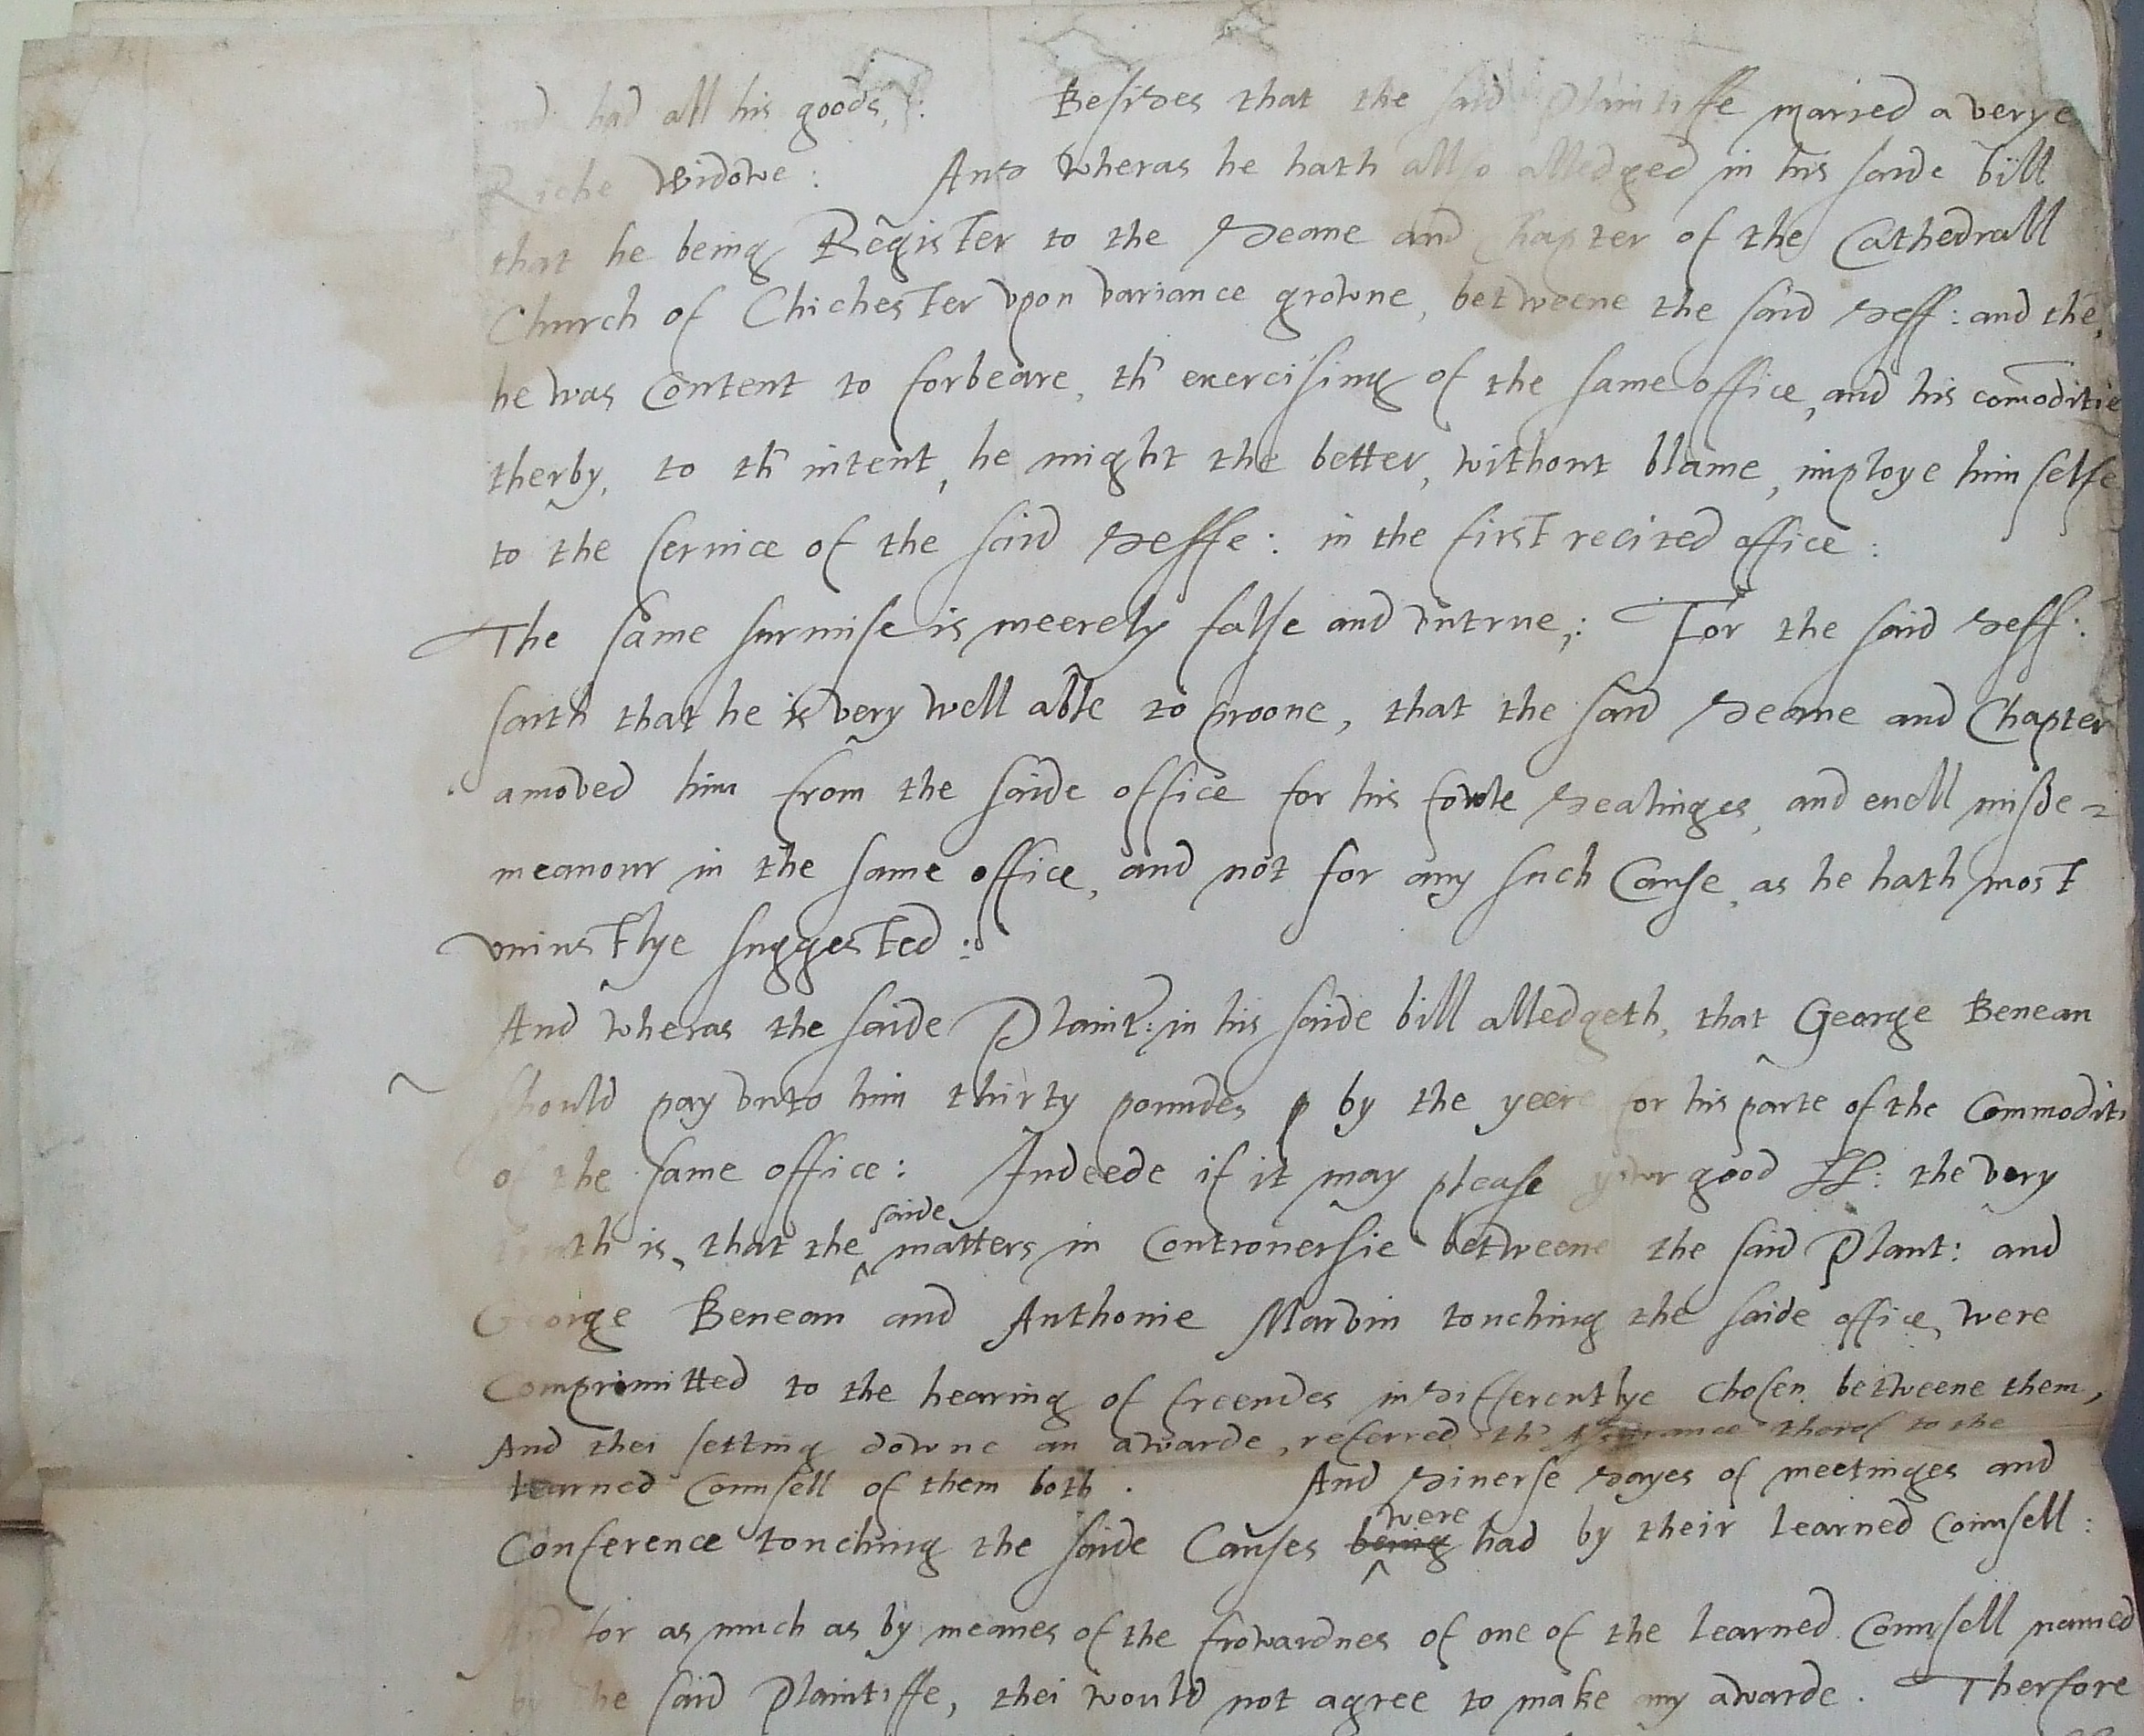 and had all his goods,: Besides that the said Plaintiffe maried a verye
Riche widowe: And wheras he hath allso alledged in his saide bill
that he being Register to the Deane and Chapter of the Cathedrall
Church of Chichester vpon variance growne, betweene the said deff: and the,
he was Content to forbeare, th' exercising of the same office, and his comoditie
therby, to th' intent, he might the better, without blame, imploye him selfe
to the seruice of the said deffe: in the first recited office:
The same surmise is meerely false and vntrue,: For the said deff:
saith that he is very well able to prooue, that the said Deane and Chapter
amoved him from the saide office for his fowle dealinges, and euell misde=
meanour in the same office, and not for any such Cause, as he hath most
vniustlye suggested:
And wheras the saide Plaint: in his saide bill alledgeth, that George Benean
should pay vnto him thirty poundes p by the yeere for his parte of the Commoditi
of the same office: Indeede if it may please your good LL: the very
truth is, that the saide matters in Controuersie betweene the said Plant: and
George Benean and Anthonie Marvin touching the saide office, were
Comprimitted to the hearing of freendes indifferentlye chosen betweene them,
And thei setting downe an awarde, referred th' assurance therof to the
learned Counsell of them both. And diuerse dayes of meetinges and
Conference touching the saide Causes being were had by their learned counsell:
And for as much as by meanes of the frowardnes of one of the learned Counsell named
by the said Plaintiffe, thei would not agree to make any awarde. Therfore